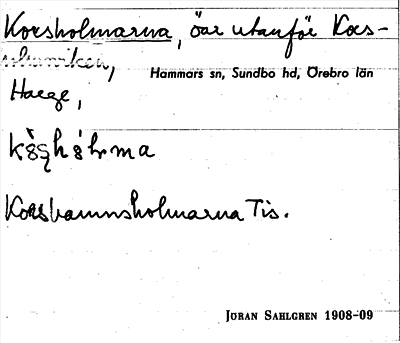 Korsholmarna, öar utanför Kors-
hamnviken,
Hammars sn, Sundbo hd, Örebro län
Harge,
Korshamnsholmarna Tis.
JÖRAN SAHLGREN 1908-09